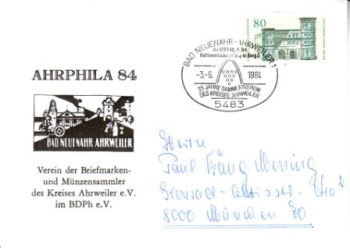 80
BAD NEUENAHR-AHRWEILER 1
AHRPHILA 84
-3.-6. 1984
25 JAHRE SAMMLERVEREIN
DES KREISES AHRWEILER
5483
AHRPHILA 84
BAD NEUENAHR AHRWEILER
Verein der Briefmarken-
und Münzensammler
des Kreises Ahrweiler e.V.
im BDPh e.V.
Herrn
Paul
8000 München 80